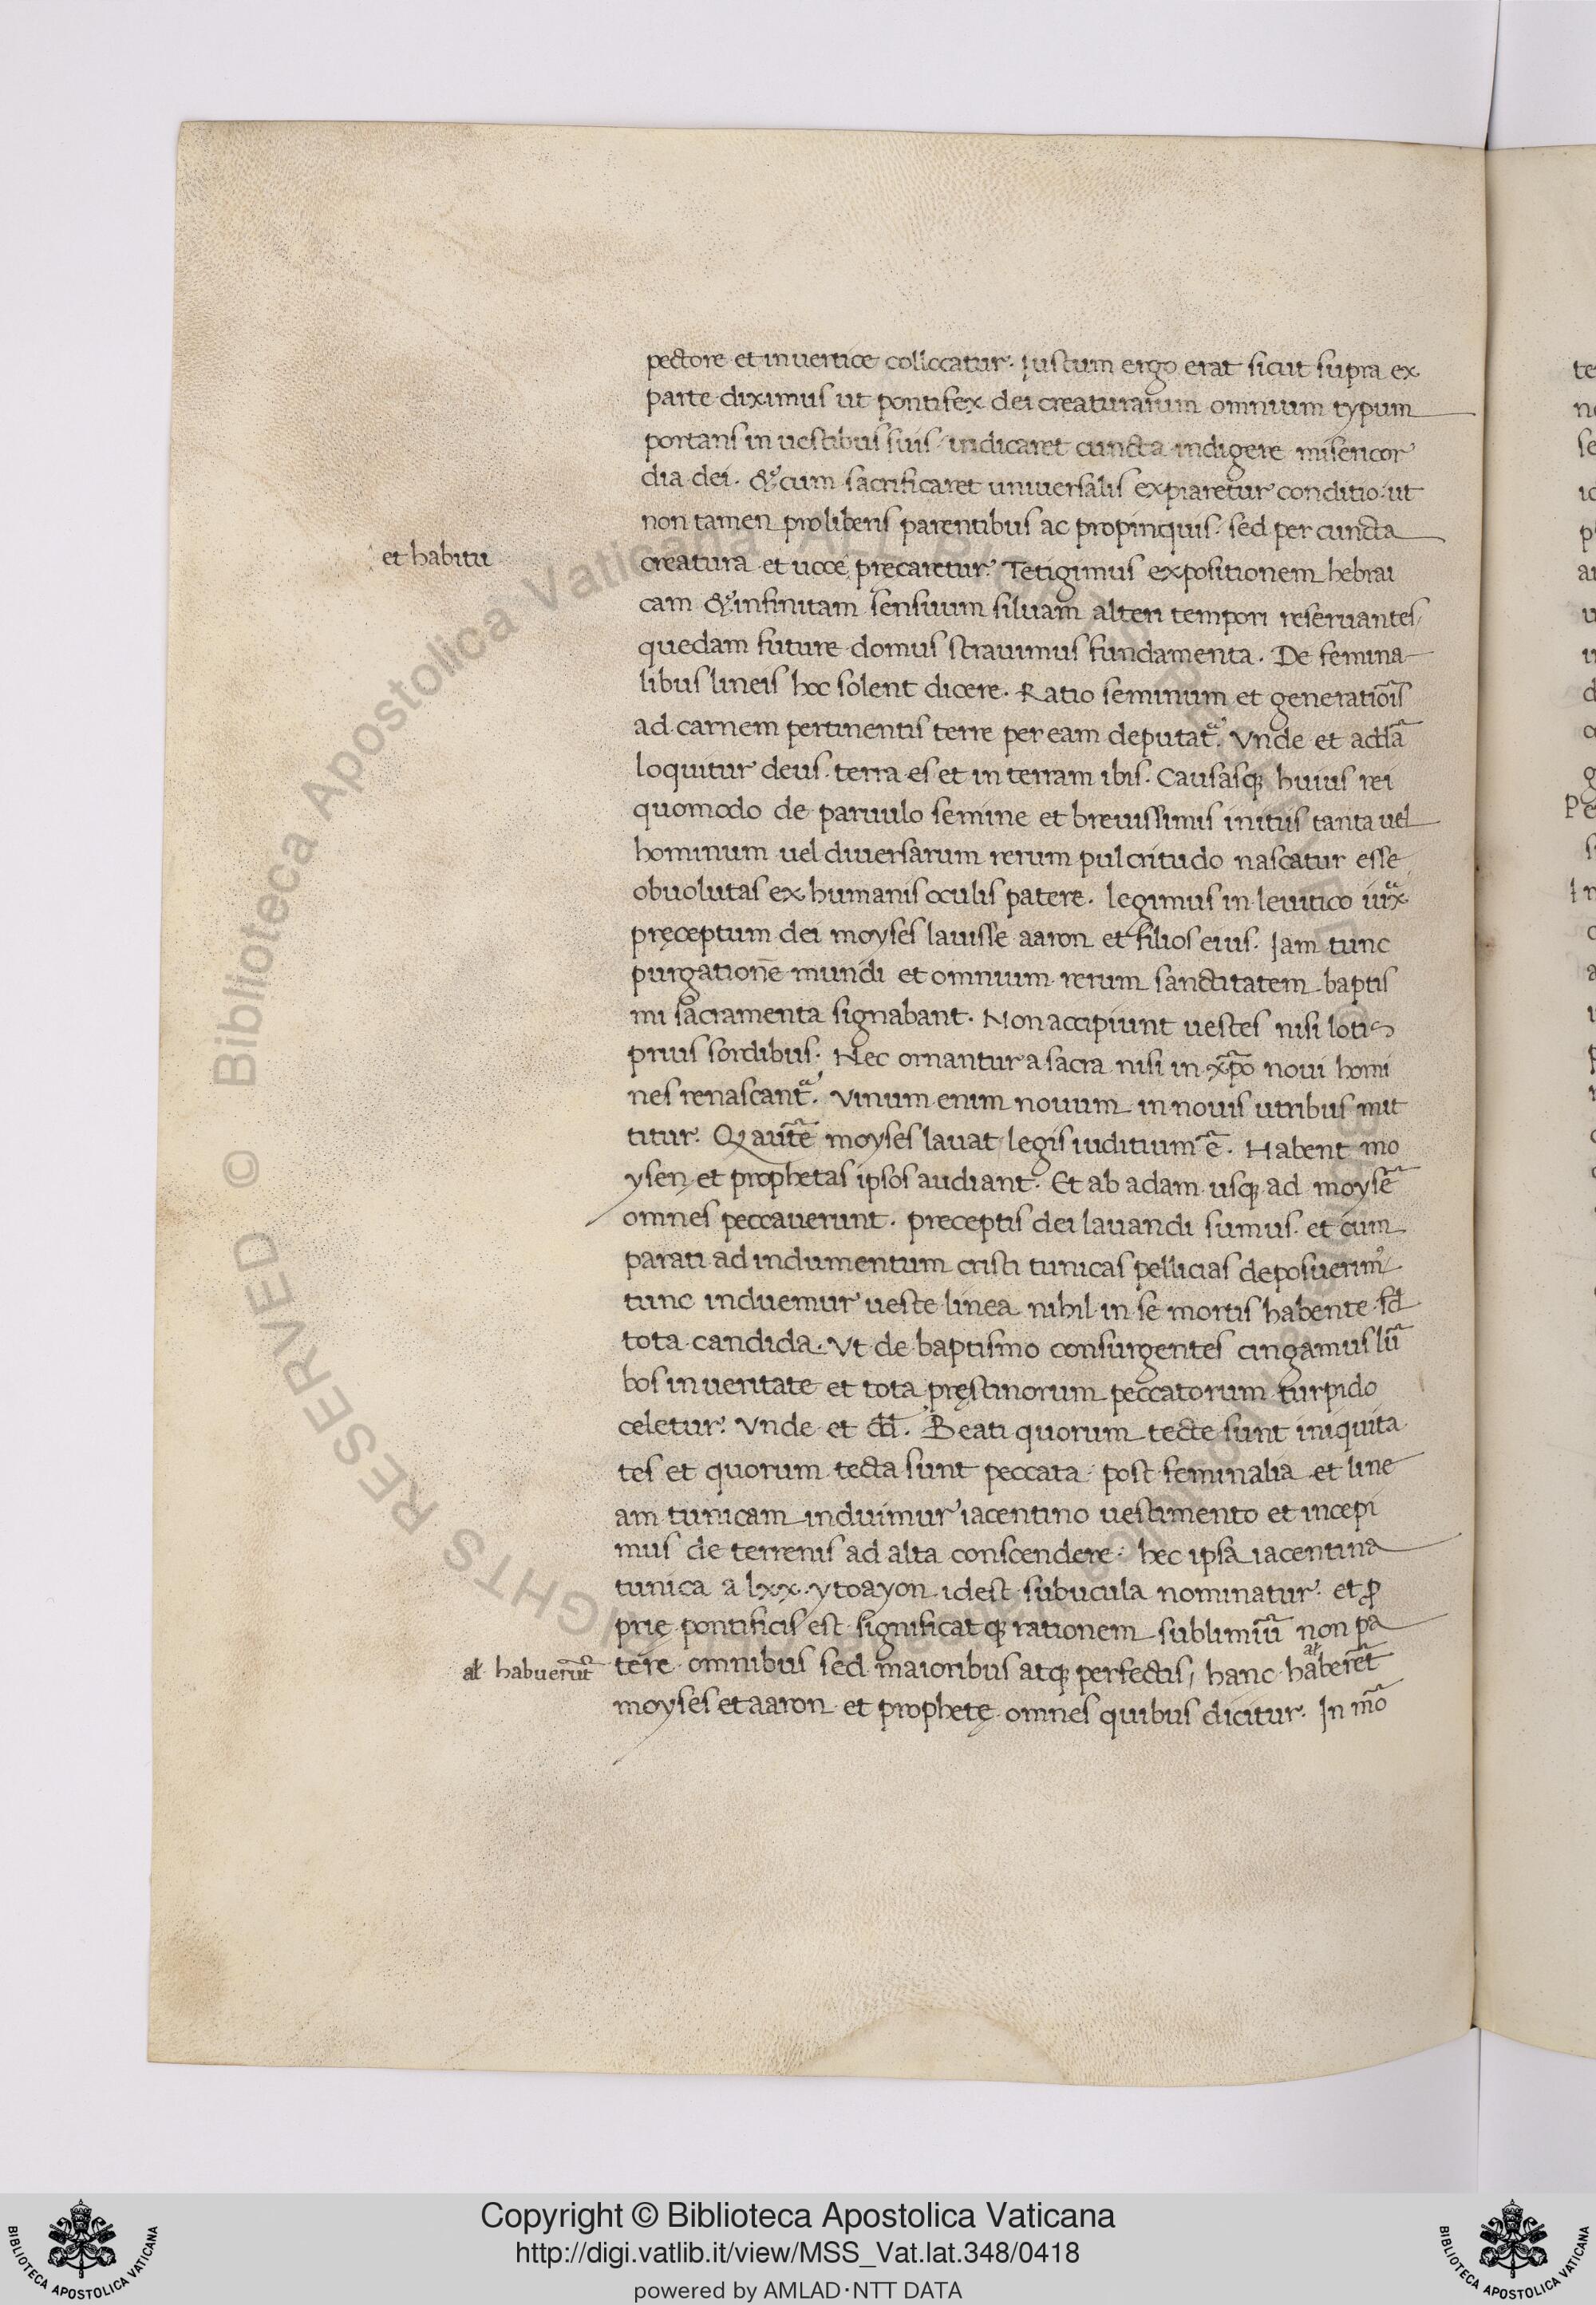 pectore et in uertice collocatur. Iustum ergo erat sicut supra ex
parte diximus ut pontifex dei creaturarum omnium typum
portans in uestibus suis indicaret cuncta indigere misericor
dia dei. & cum sacrificaret uniuersalis expiaretur conditio. ut
non tamen pro liberis parentibus ac propinquis. sed per cuncta
et habitu
creatura et uoce precaretur. Tetigimus expositionem hebrai
cam & infinitam sensuum siluam alteri tempori reseruantes
quedam future domus strauimus fundamenta. De femina
libus lineis hoc solent dicere. Ratio seminum et generatiõis
ad carnem pertinentis terre per eam deputat̃. Vnde et ad
loquitur deus. terra es et in terram ibis. Causasq; huius rei
quomodo de paruulo semine et breuissimis initiis tanta uel
hominum uel diuersarum rerum pulcritudo nascatur esse
obuolutas ex humanis oculis patere. legimus in leuitico
pręceptum dei moyses lauisse aaron et filios eius. Iam tunc
purgationẽ mundi et omnium rerum sanctitatem baptis
mi sacramenta signabant. Non accipiunt uestes nisi lotis
prius sordibus. Nec ornantur a sacra nisi in xp̃o noui homi
nes renascant̃. Vinum enim nouum in nouis utribus mit
titur. autẽ moyses lauat legis iuditium ẽ. Habent mo
ysen et prophetas ipsos audiant. Et ab adam usq; ad moysẽ
omnes peccauerunt. preceptis dei lauandi sumus. et cum
parati ad indumentum cristi tunicas pellicias deposuerim⁹
tunc induemur ueste linea nihil in se mortis habente sd̃
tota candida. Vt de baptismo consurgentes cingamus lũ
bos in ueritate et tota pręstinorum peccatorum turpido
celetur. Vnde et dd̃. Beati quorum tecte sunt iniquita
tes et quorum tecta sunt peccata. post feminalia et line
am tunicam induimur iacentino uestimento et incepi
mus de terrenis ad alta conscendere. hec ipsa iacentina
tunica a lxx. ytoayon idest subucula nominatur. et ꝓ
prie pontificis est significatq; rationem sublimiũ non pa
al habuerũt
tere omnibus sed maioribus atq; perfectis, hanc haberẽt
moyses et aaron et prophetę omnes quibus dicitur. In mõ
© Biblioteca Apostolica Vaticana ALL RIGHTS RESERVED
Copyright © Biblioteca Apostolica Vaticana
http://digi.vatlib.it/view/MSS_Vat.lat.348/0418
powered by AMLAD·NTT DATA
BIBLIOTECA APOSTOLICA VATICANA
BIBLIOTECA APOSTOLICA VATICANA